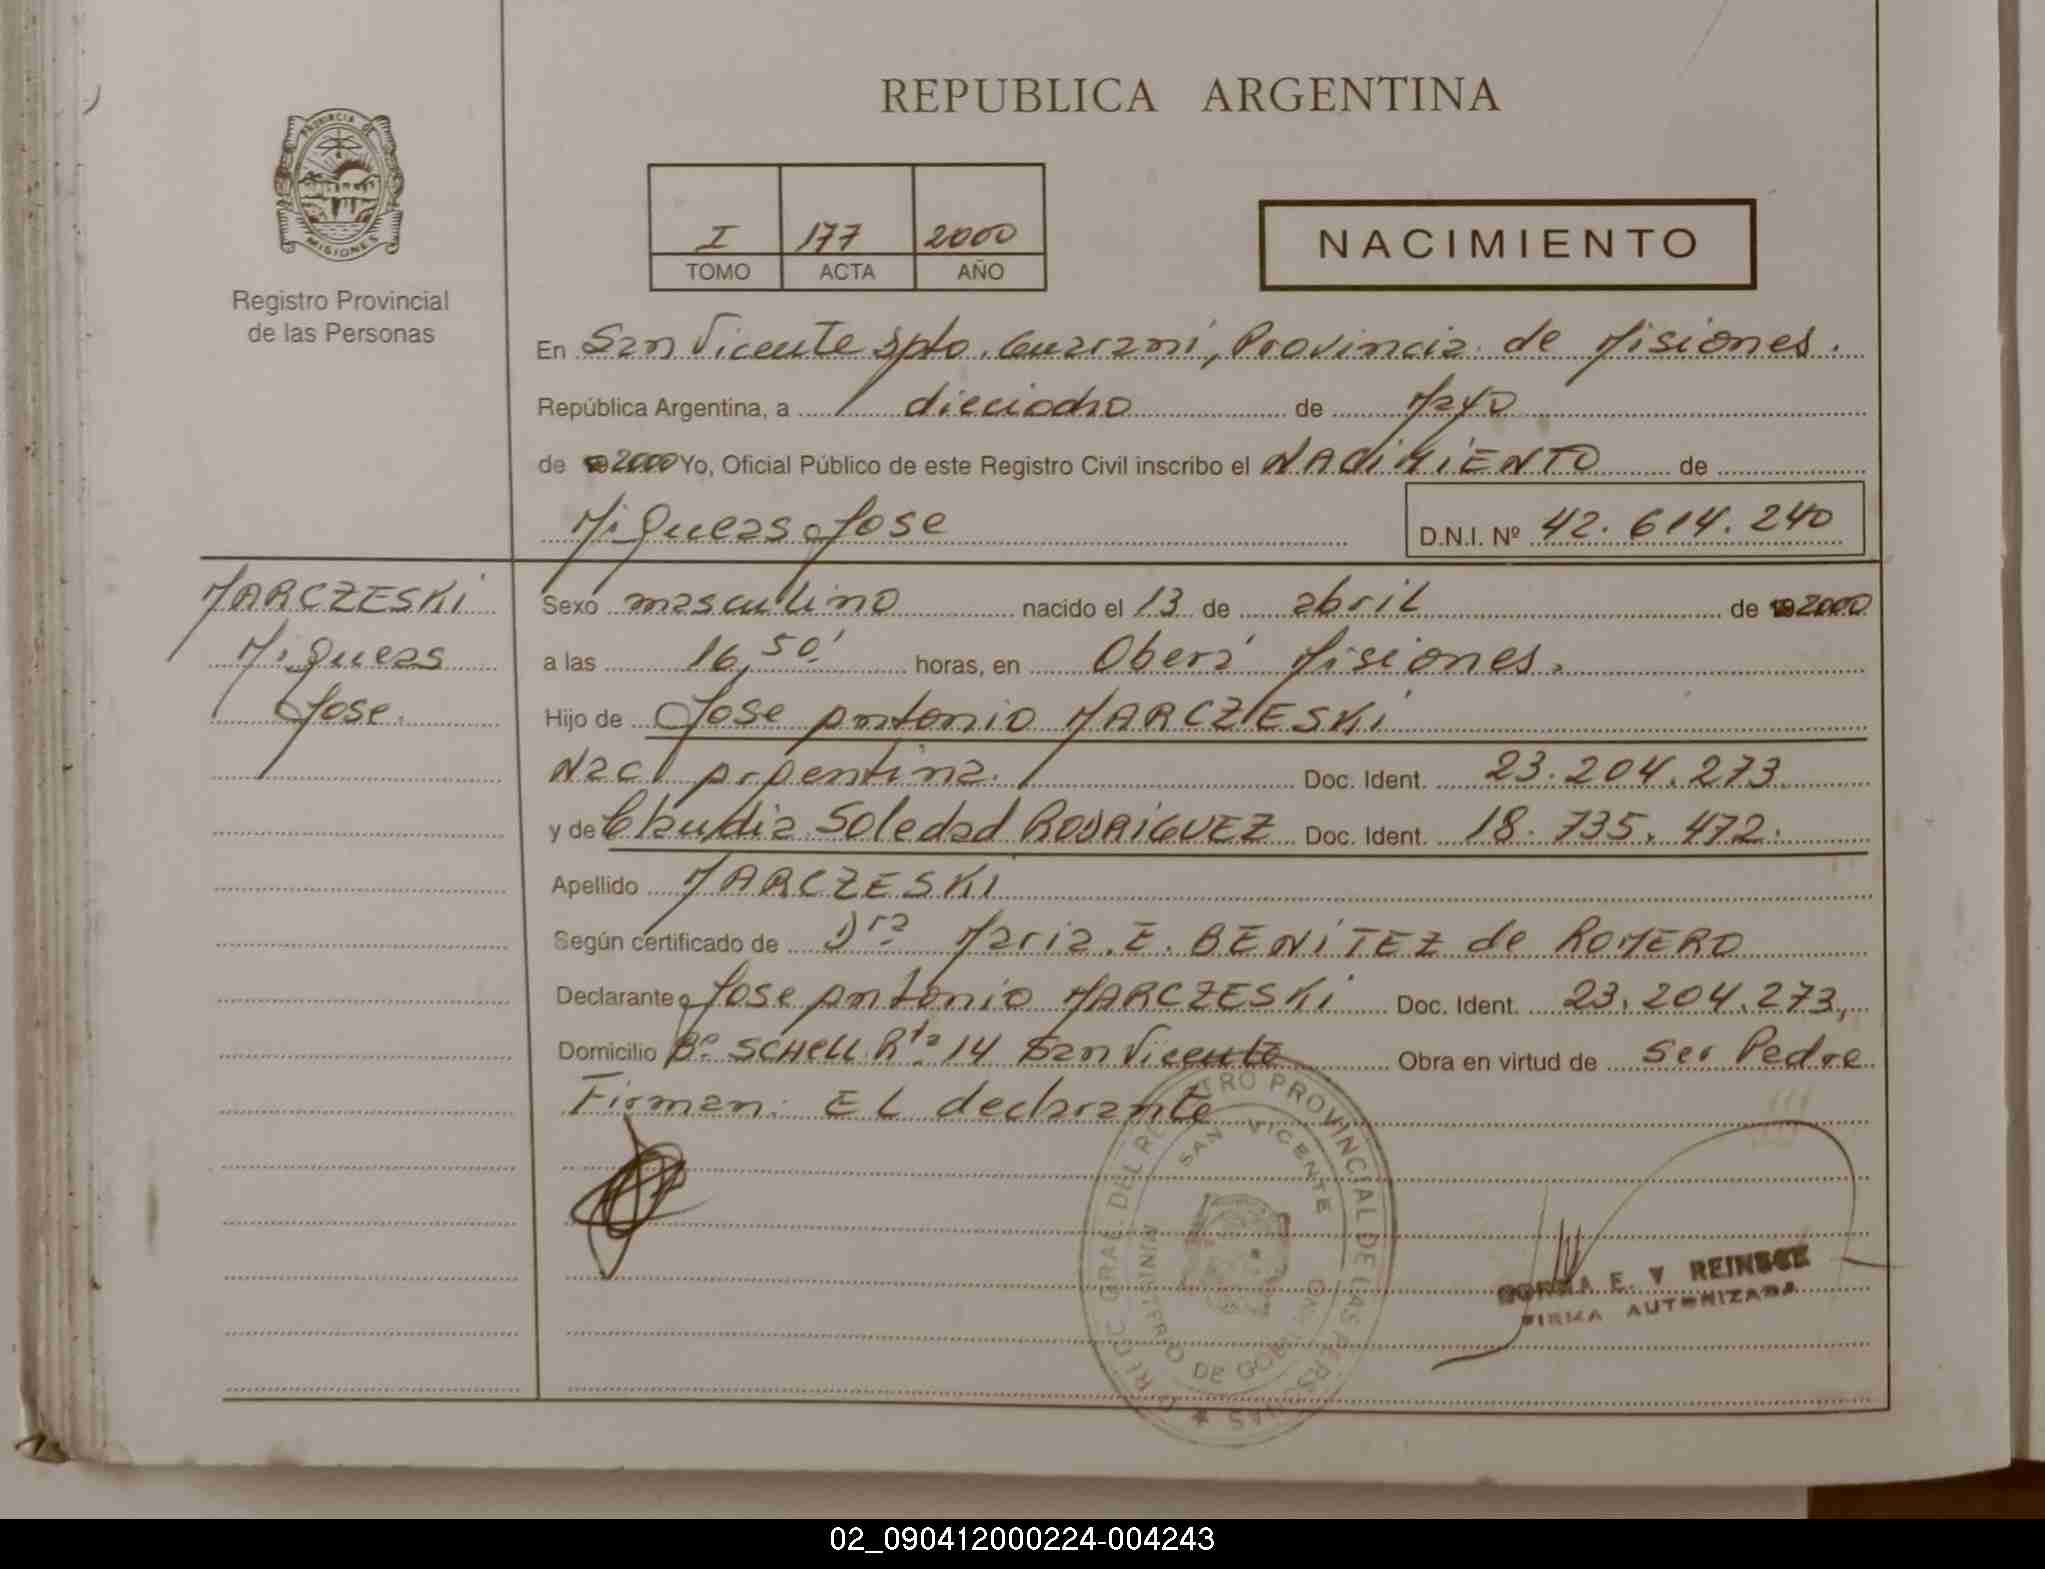 REPUBLICA ARGENTINA
PROVINCIA DE
MISIONES
Registro Provincial
de las Personas
I 177 2000
TOMO ACTA AÑO
NACIMIENTO
En San Vicente Dpto. Guarani, Provincia de Misiones.
República Argentina, a dieciocho de Mayo
de 2000 Yo, Oficial Público de este Registro Civil inscribo el NACIMIENTO de
Miqueas Jose D.N.I. Nº 42.614.240
MARCZESKI
Miqueas
Jose.
Sexo masculino nacido el 13 de abril de 192000
a las 16,50' horas, en Oberá Misiones.
Hijo de Jose Antonio MARCZESKI
Nac. Argentina. Doc. Ident. 23.204.273.
y de Claudia Soledad RODRIGUEZ Doc. Ident. 18.735.472.
Apellido MARCZESKI
Según certificado de Dra Maria. E. BENITEZ de ROMERO
Declarante Jose Antonio MARCZESKI Doc. Ident. 23.204.273,
Domicilio Bº SCHELL Rta 14 San Vicente Obra en virtud de Ser Padre
Firman: EL declarante
GRAL DEL REGISTRO PROVINCIAL DE LAS PERSONAS
SAN VICENTE
MINISTERIO DE GOBIERNO
NORMA E. V REINECK
FIRMA AUTORIZADA
02_090412000224-004243